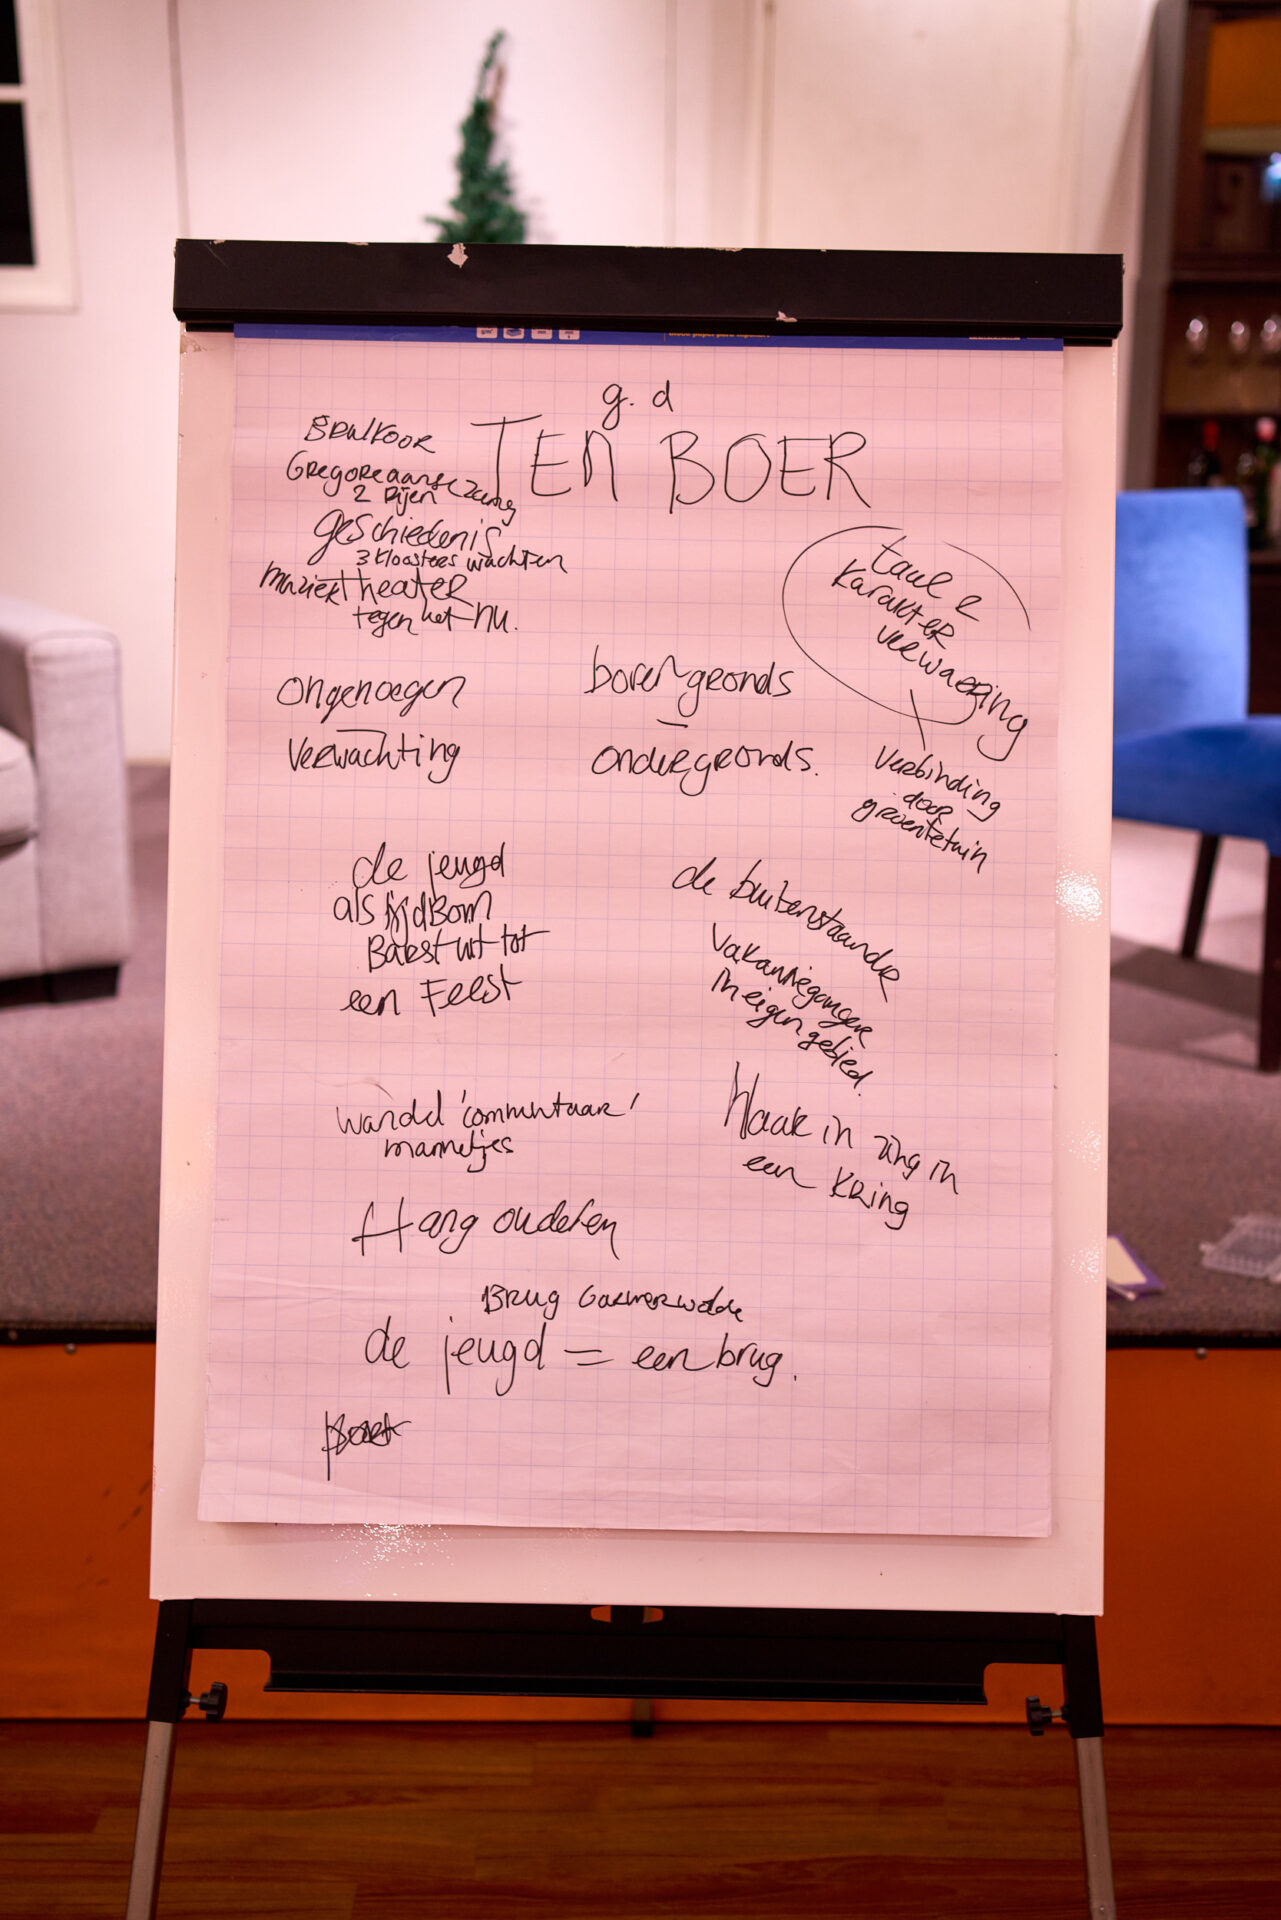 g. d
TEN BOER
BRULKOOR
GREGOREAANSE ZANG
2 Rijen
geschiedenis
3 kloosters wachten
muziektheater
tegen het nu.
taal &
karakter
verwarring
verbinding
door
groentetuin
ongenoegen
—
verwachting
bovengronds
—
ondergronds.
de jeugd
als tijdbom
Barst uit tot
een Feest
de buitenstaander
vakantieganger
in eigen gebied.
wandel 'commentaar'
mannetjes
Haak in zing in
een KRing
Hang ouderen
Brug Garmerwolde
de jeugd = een brug.